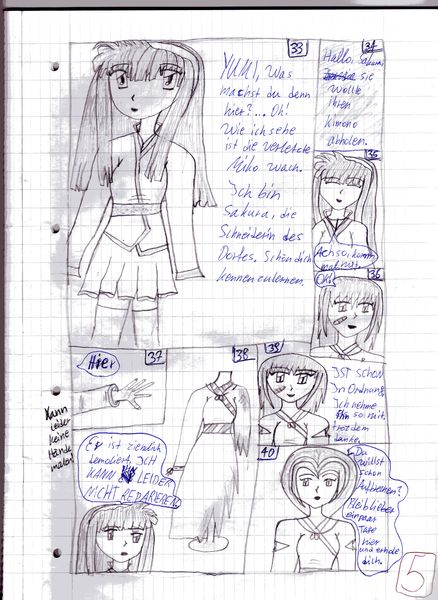 33
YUKI, Was
machst du denn
hier?... Oh!
Wie ich sehe
ist die verletzte
Miko wach.
Ich bin
Sakura, die
Schneiderin des
Dorfes. Schön dich
kennenzulernen.
34
Hallo, Sakura.
sie
wollte
ihren
Kimono
abholen.
35
Ach so, komm
mal mit.
36
Oh!
37
Hier
Kann
leider
keine
Hände
malen!
Er ist ziemlich
demoliert, ICH
KANN LEIDER
NICHT REPARIEREN
38
39
IST SCHON
In Ordnung
Ich nehme
ihn so mit
trozdem
danke.
40
Du
willst
schon
Aufbrechen?
Bleib lieber
ein paar
Tage
hier
und erhole
dich.
5